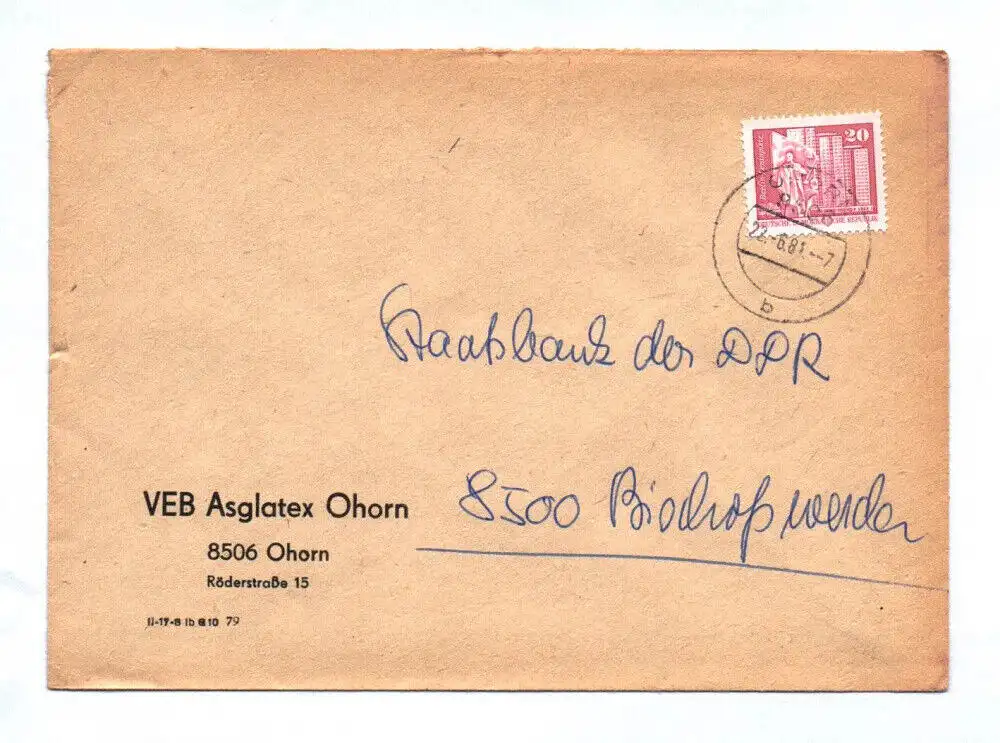 20
Berlin, Leninplatz
DEUTSCHE DEMOKRATISCHE REPUBLIK
22.-6.81.--7
b
Staatsbank der DDR
8500 Bischofswerda
VEB Asglatex Ohorn
8506 Ohorn
Röderstraße 15
79